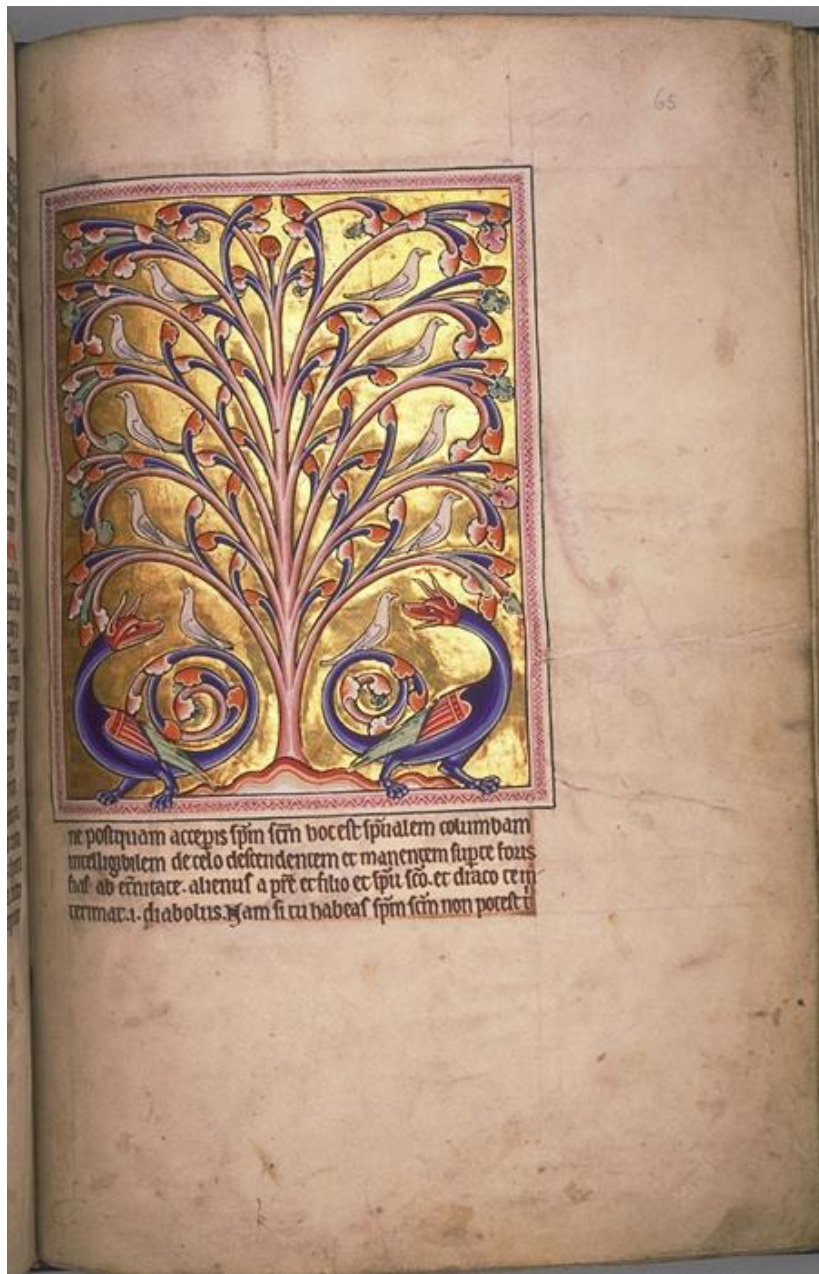 65
ne postquam acceperis sp̄m sc̄m hoc est sp̄ualem columbam
intelligibilem de celo descendentem et manentem sup te foris
fias ab et̄nitate. alienus a p̄re et filio et sp̄u sc̄o. et draco te in
terimat .i. diabolus. Nam si tu habeas sp̄m sc̄m non potest t̄